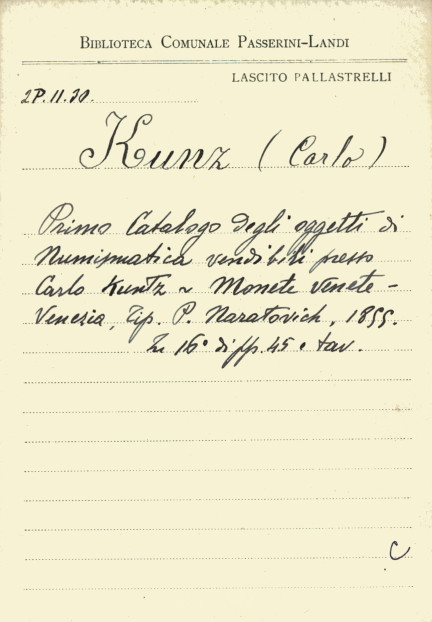 Biblioteca Comunale Passerini-Landi
LASCITO PALLASTRELLI
2P.11.30.
Kunz (Carlo)
Primo Catalogo degli oggetti di
Numismatica vendibili presso
Carlo Kuntz ~ Monete Venete -
Venezia, Tip. P. Naratovich, 1855.
In 16° di pp. 45 e tav.
C